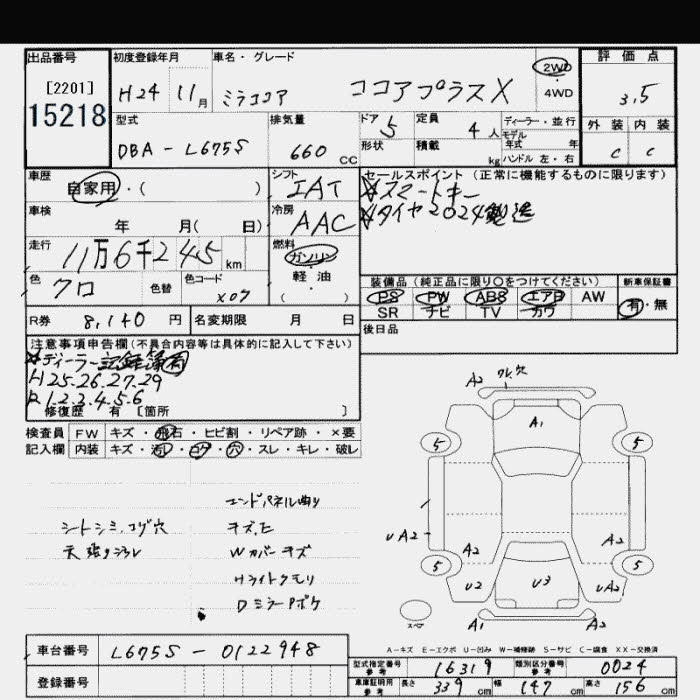 出品番号 初度登録年月 車名・グレード 2WD 評価点
[2201] H24 11月 ミラココア ココアプラスX ・ 4WD 3.5
15218 型式 排気量 ドア 定員 ディーラー・並行 外装 内装
DBA-L675S 660CC 5 4人 モデル年式 年 C C
形状 積載 kg ハンドル 左・右
車歴 シフト セールスポイント(正常に機能するものに限ります)
自家用・( ) IAT ☆スマートキー
車検 冷房 ☆タイヤ2024製造
年 月( 日) AAC
走行 燃料
11万6千245km ガソリン
色 色替 色コード ・軽・油 装備品(純正品に限り○をつけてください) 新車保証書
クロ X07 ( ) PS PW ABS エアB AW 有・無
SR ナビ TV カワ
R券 8,140円 名変期限 月 日 後日品
注意事項申告欄(不具合内容等は具体的に記入して下さい)
☆ディーラー記録簿有
H25.26.27.29
R1.2.3.4.5.6
修復歴 有 [箇所 ]
検査員 FW キズ・飛石・ヒビ割・リペア跡・×要
記入欄 内装 キズ・汚レ・コゲ・穴・スレ・キレ・破レ
A2 穴
A1
5 5
エンドパネル曲り
シートシミ.コゲ穴 キズ.E
天張リヨゴレ Wカバーキズ
Hライトクモリ
DミラーPボケ
UA2 A2 A2
5 5
U2 U3 UA2
スペア A1 A2
A-キズ E-エクボ U-凹み W-補修跡 S-サビ C-腐食 XX-交換済
車台番号 L675S-0122948
登録番号
型式指定番号 参考 16319 類別区分番号 参考 0024
車庫証明用 参考 長さ 339cm 幅 147cm 高さ 156cm